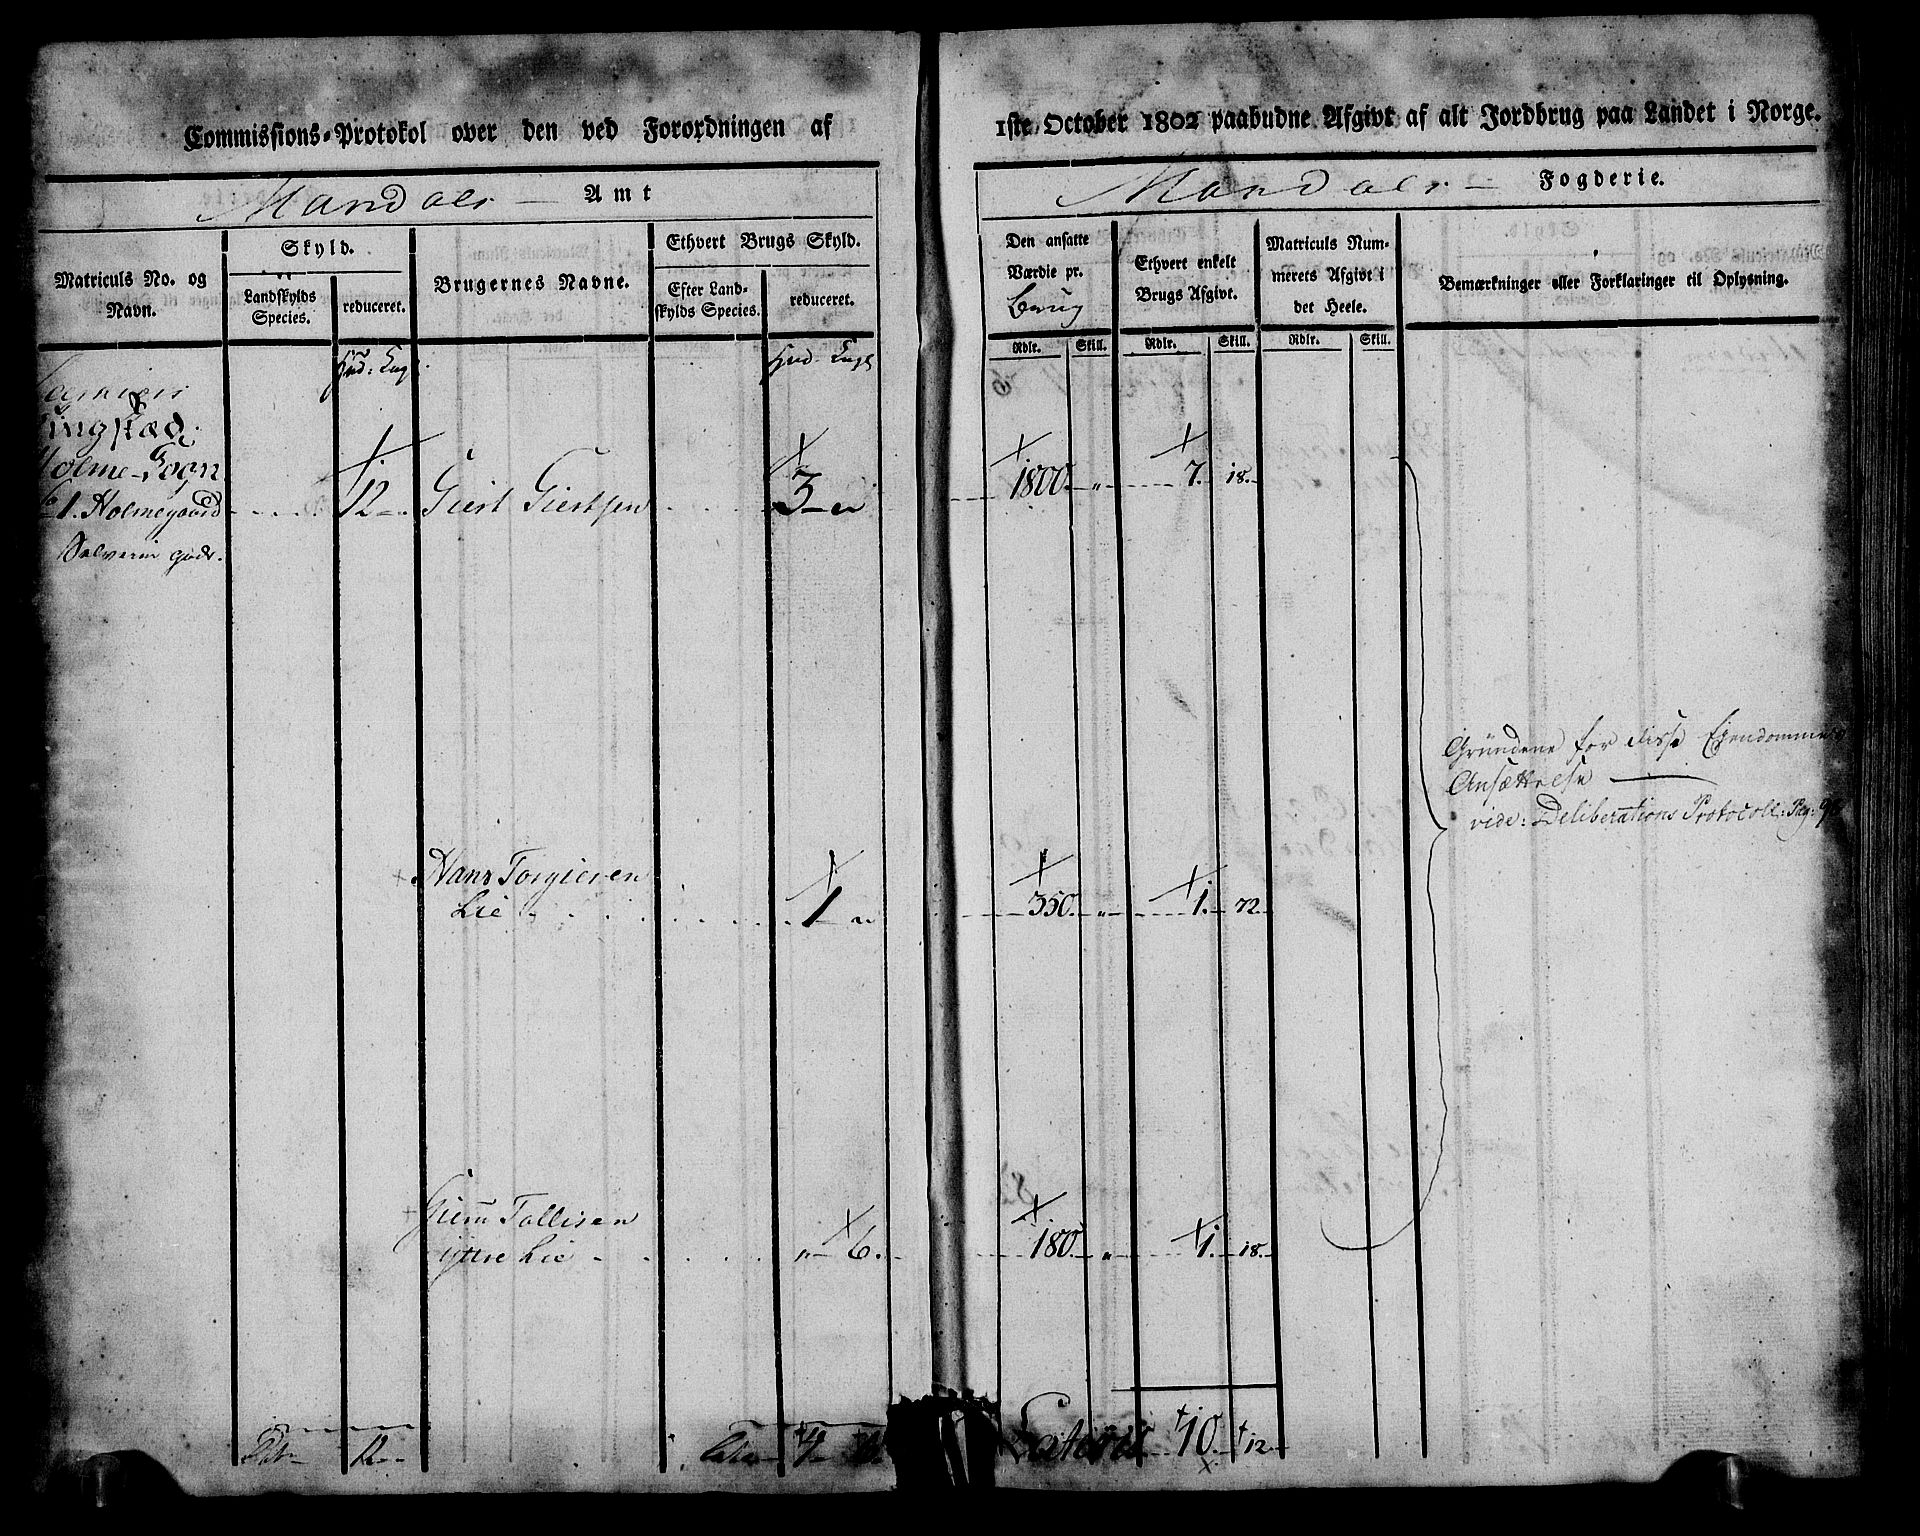 Commissions-Protokol over den ved Forordningen af
1ste October 1802 paabudne Afgivt af alt Jordbrug paa Landet i Norge.
Mandals Amt
Mandals Fogderie.
Matriculs No. og Navn.
Skyld.
Landskylds Species.
reduceret.
Brugernes Navne.
Ethvert Brugs Skyld.
Efter Landskylds Species.
reduceret.
Den ansatte Værdie pr. Brug
Rdlr. Skill.
Ethvert enkelt Brugs Afgivt.
Rdlr. Skill.
Matriculs Nummerets Afgivt i det Heele.
Rdlr. Skill.
Bemærkninger eller Forklaringer til Oplysning.
Hud: Eng.
Hud. Eng.
Holme Sogn
1. Holmegaard 12 Giert Giertsen 3 " 1800. " 7. 18.
gods.
Gründene for disse Eiendommes
Ansættelse
vide: Deliberations Protocoll: Pag:
Hans Torgiersen
Lie 1 " 350. " 1. 72
Tollisen
ytre Lie " 6. 180. " 1. 18.
Lat. 12 Latus 4 6. Lateris 10. 12